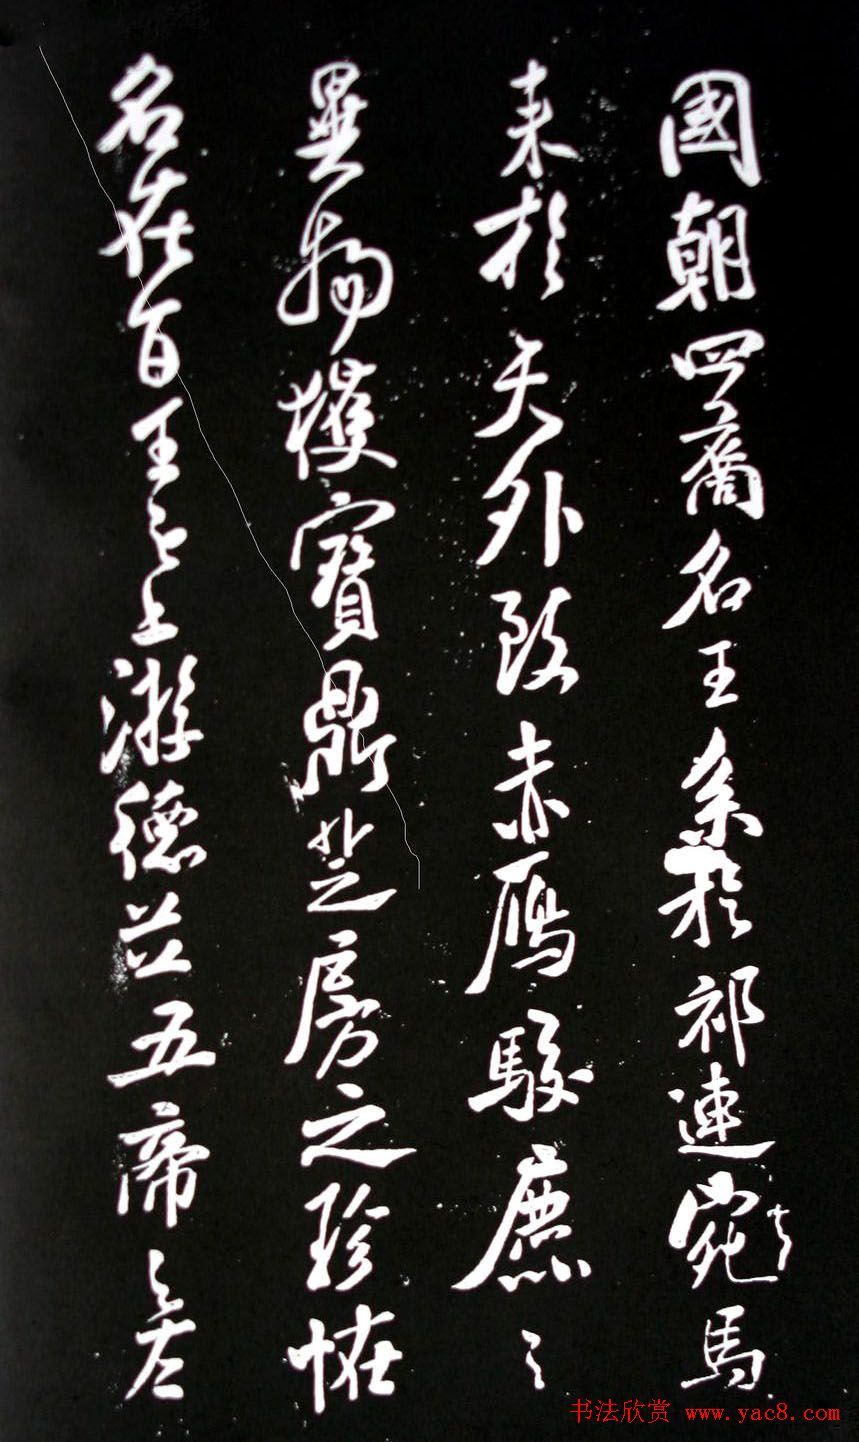 國朝四裔名王系於祁連宛馬
来於天外致赤鴈駮麃之
異物獲寶鼎芝房之珍怪
名在百王之上游德並五帝之
书法欣赏 www.yac8.com